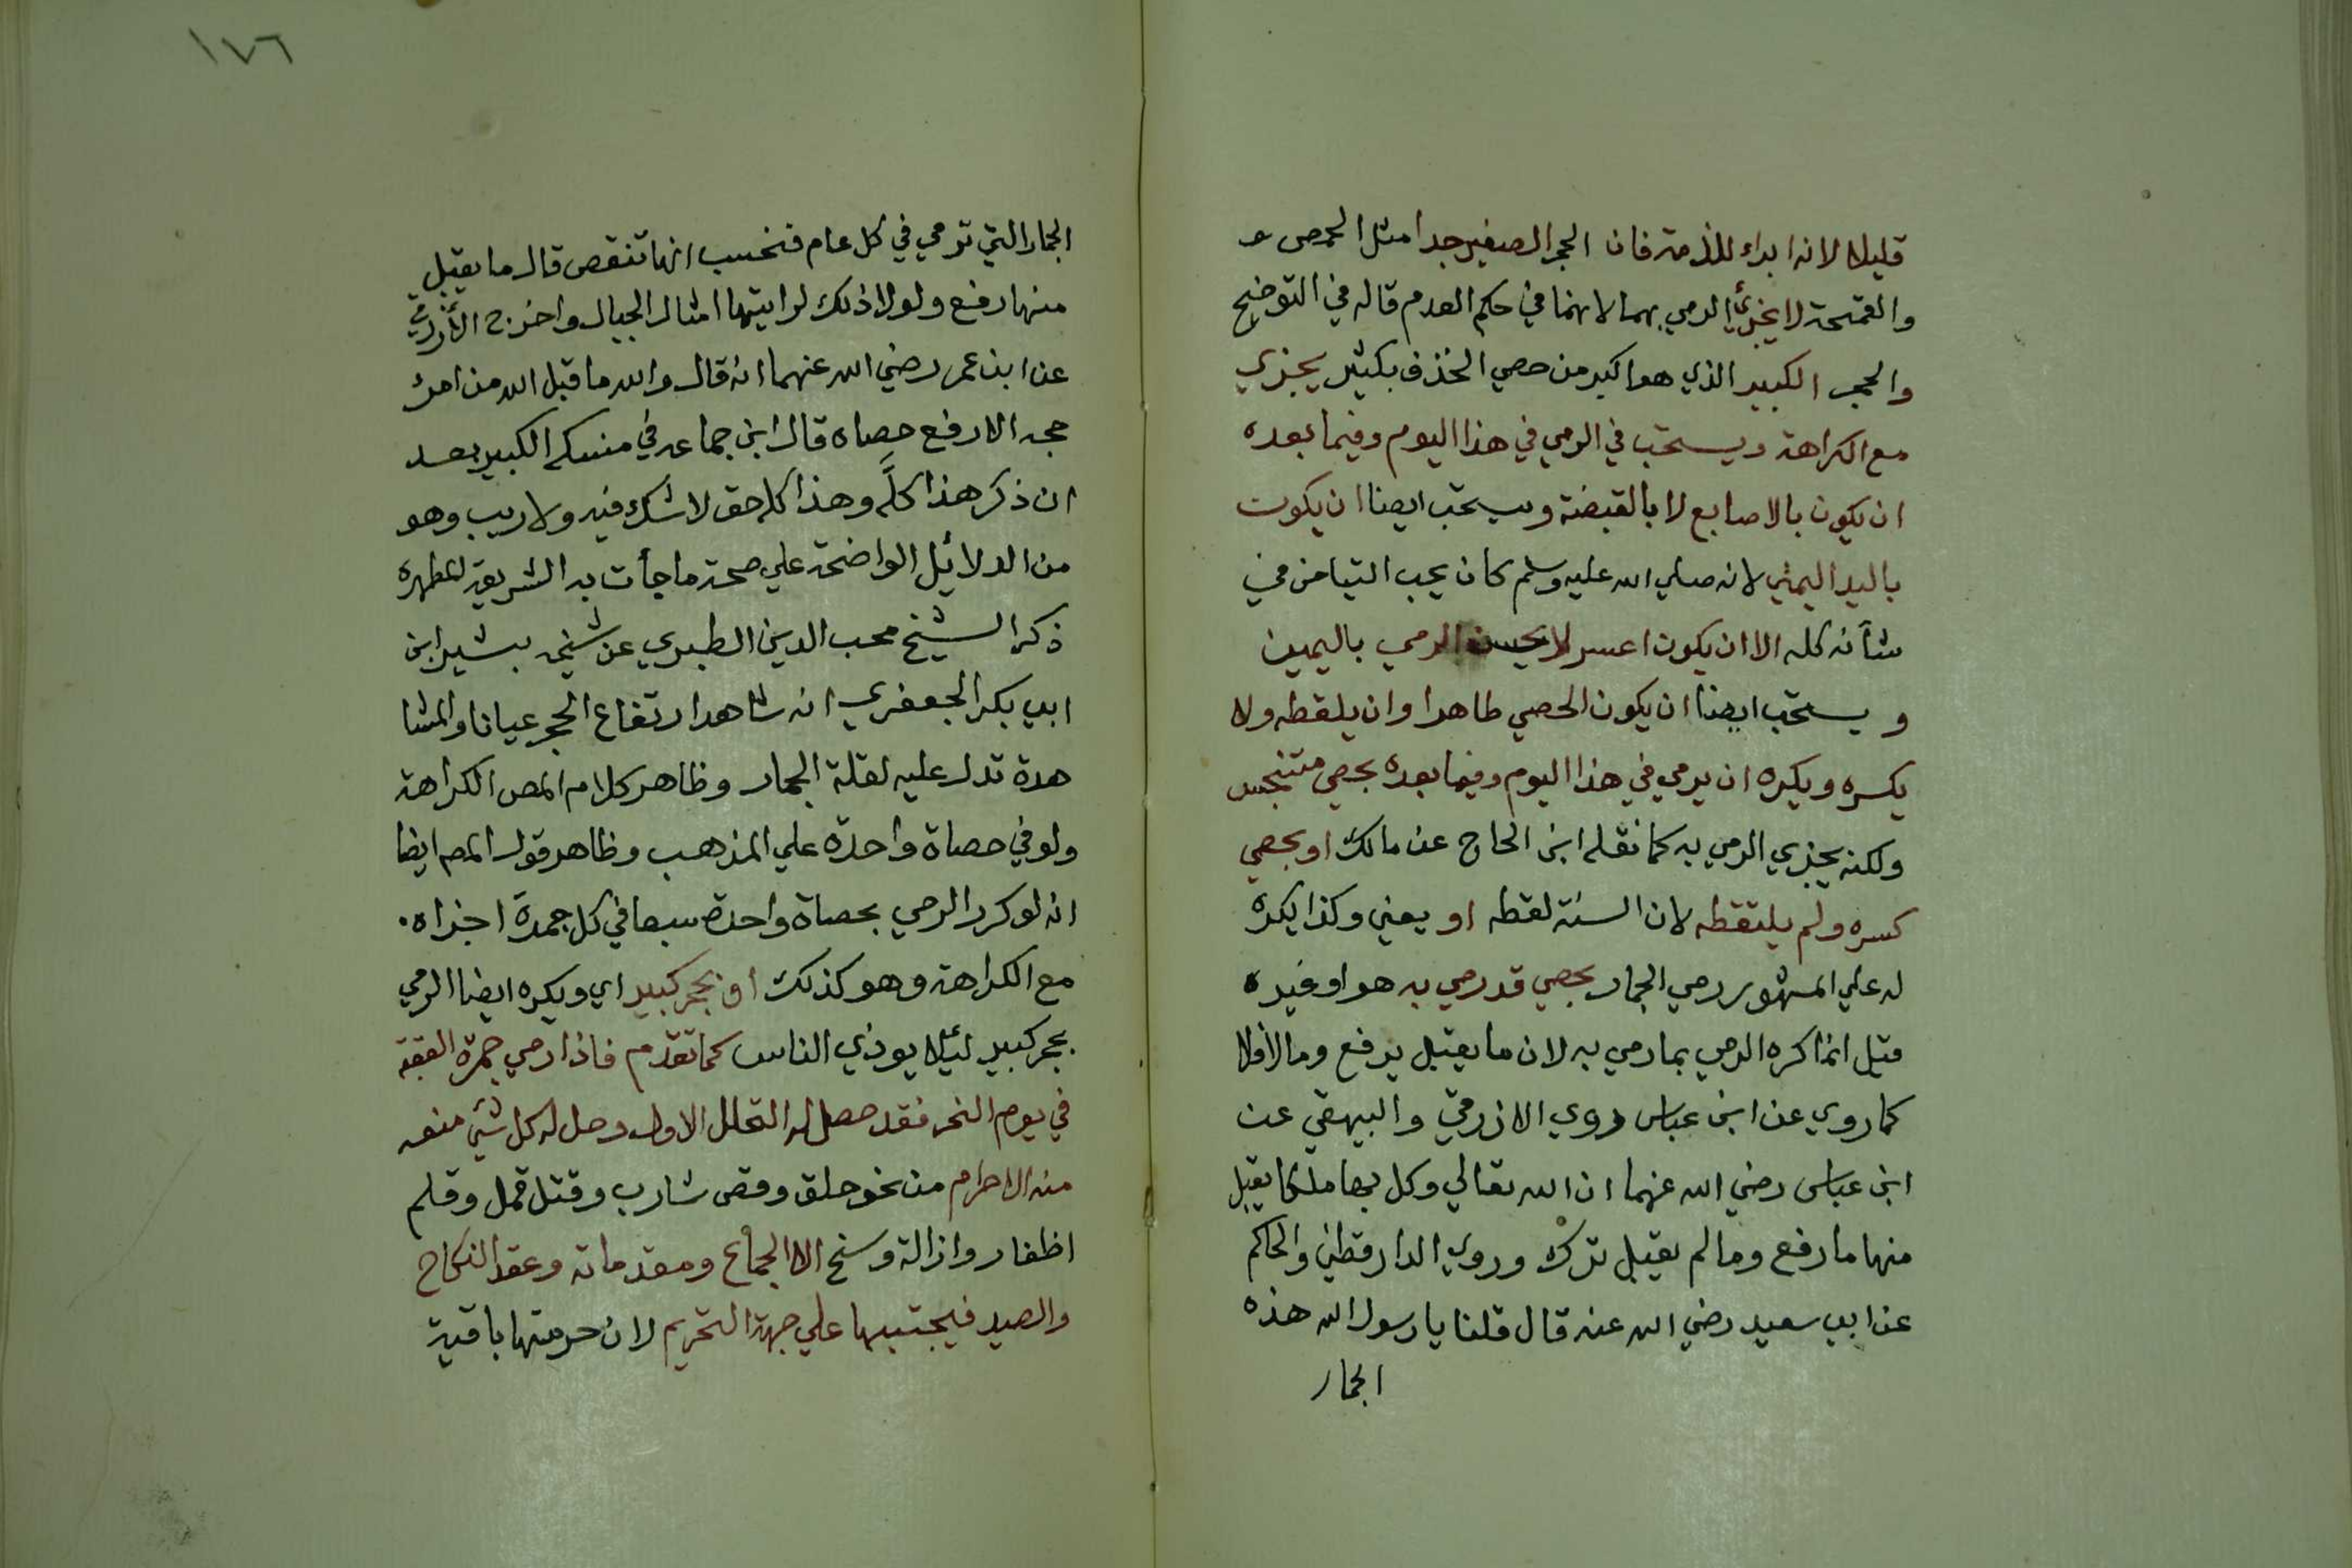 قليلا لانه ابراء للذمة فان الحجر الصغير جدا مثل الحمص و
والقمحة لا يجزئ الرمي بهما لانهما في حكم العدم قاله في التوضيح
والحجر الكبير الذي هو اكبر من حصي الخذف بكثير يجزي
مع الكراهة ويستحب في الرمي في هذا اليوم وفيما بعده
ان يكون بالاصابع لا بالقبضة ويستحب ايضا ان يكون
باليد اليمني لانه صلي الله عليه وسلم كان يحب التيامن في
شأنه كله الا ان يكون اعسر لا يحسن الرمي باليمين
ويستحب ايضا ان يكون الحصي طاهرا وان يلقطه ولا
يكسره ويكره ان يرمي في هذا اليوم وفيما بعده بحصي متنجس
ولكنه يجزي الرمي به كما نقله ابن الحاج عن مالك او بحصي
كسره ولم يلتقطه لان السنة لقطه او يعني وكذا يكره
له علي المشهور رمي الجمار بحصي قد رمي به هو او غيره
قيل انما كره الرمي بما رمي به لان ما يقبل يرفع ومالا فلا
كما روي عن ابن عباس وروي الازرقي والبيهقي عن
ابن عباس رضي الله عنهما ان الله تعالي وكل بها ملكا يقبل
منها ما رفع وما لم يقبل ترك وروي الدارقطني والحاكم
عن ابي سعيد رضي الله عنه قال قلنا يا رسول الله هذه
الجمار
١٧٦
الجمار التي ترمي في كل عام فنحسب انها تنقص قال ما يقبل
منها رفع ولولا ذلك لرايتها امثال الجبال واخرج الأزرقي
عن ابن عمر رضي الله عنهما انه قال والله ما قبل الله من امرئ
حجه الا رفع حصاه قال ابن جماعه في منسكه الكبير بعد
ان ذكر هذا كلَّه وهذا كله حق لا شك فيه ولا ريب وهو
من الدلائيل الواضحة علي صحة ما جأت به الشريعة المطهرة
ذكر الشيخ محب الدين الطبري عن شيخه بشير ابن
ابي بكر الجعفري انه شاهد ارتفاع الحجر عيانا والمشا
هدة تدل عليه لقلة الجمار وظاهر كلام المص الكراهة
ولو في حصاة واحدة علي المذهب وظاهر قول المص ايضا
انه لو كرر الرمي بحصاة واحدة سبعا في كل جمرة اجزاه.
مع الكراهة وهو كذلك او بحجر كبير اي ويكره ايضا الرمي
بحجر كبير ليئلا يوذي الناس كما تقدم فاذا رمي جمرة العقبة
في يوم النحر فقد حصل له التحلل الاول وحل له كل شئ منعه
منه الاحرام من نحو حلق وقص شارب وقتل قمل وقلم
اظفار وازالة وسخ الا الجماع ومقدماته وعقد النكاح
والصيد فيجتنبها علي جهة التحريم لان حرمتها باقية